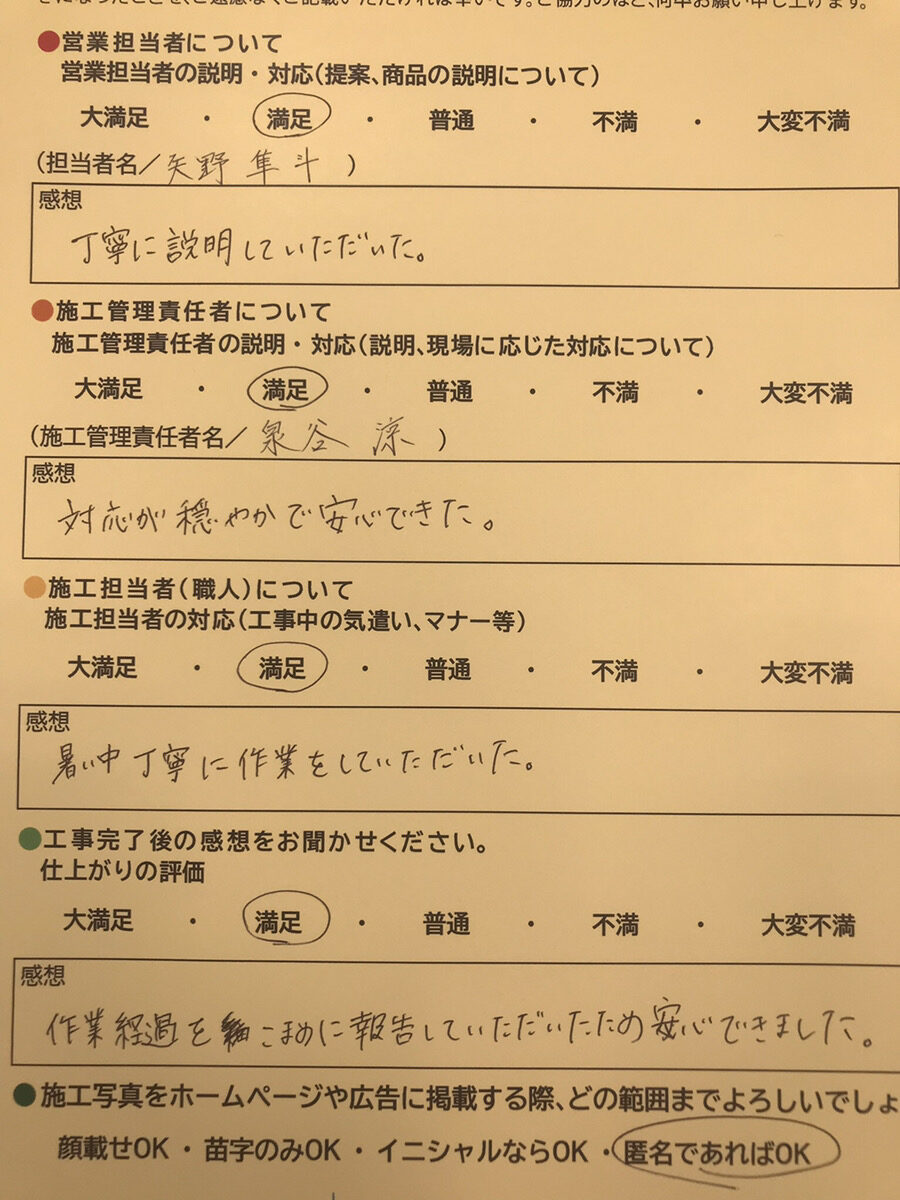 ●営業担当者について
営業担当者の説明・対応(提案、商品の説明について)
大満足 ・ 満足 ・ 普通 ・ 不満 ・ 大変不満
(担当者名/矢野 隼斗 )
感想
丁寧に説明していただいた。
●施工管理責任者について
施工管理責任者の説明・対応(説明、現場に応じた対応について)
大満足 ・ 満足 ・ 普通 ・ 不満 ・ 大変不満
(施工管理責任者名/泉谷 涼 )
感想
対応が穏やかで安心できた。
●施工担当者(職人)について
施工担当者の対応(工事中の気遣い、マナー等)
大満足 ・ 満足 ・ 普通 ・ 不満 ・ 大変不満
感想
暑い中丁寧に作業をしていただいた。
●工事完了後の感想をお聞かせください。
仕上がりの評価
大満足 ・ 満足 ・ 普通 ・ 不満 ・ 大変不満
感想
作業経過をこまめに報告していただいたため安心できました。
●施工写真をホームページや広告に掲載する際、どの範囲までよろしいでしょ
顔載せOK ・ 苗字のみOK ・ イニシャルならOK ・ 匿名であればOK